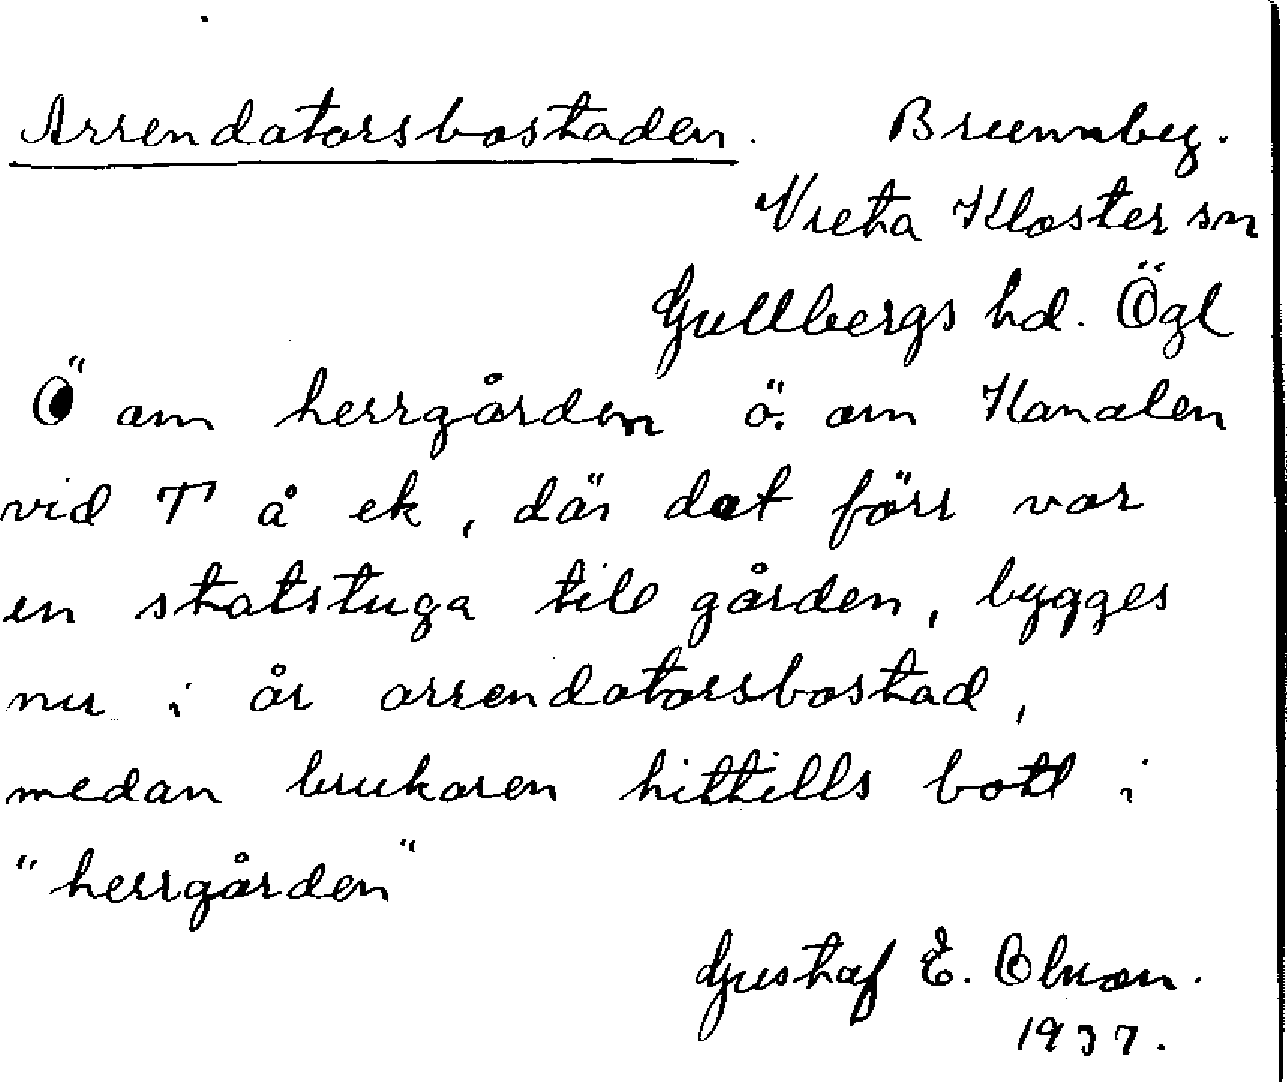 Arrendatorsbostaden. Brunnby.
Vreta Kloster sn
Gullbergs hd. Ögl
Ö om herrgården ö. om Kanalen
vid T å ek, där det förr var
en statstuga till gården, bygges
nu i år arrendatorsbostad,
medan brukaren hittills bott i
"herrgården"
Gustaf E. Olsson.
1937.